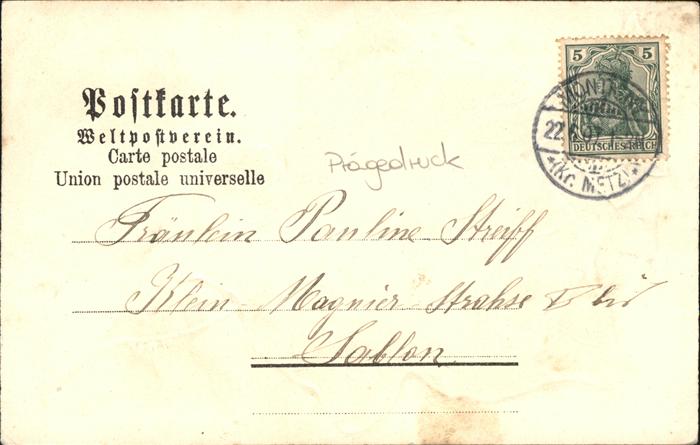 5 5
DEUTSCHES REICH
(Kr. METZ)
Postkarte.
Weltpostverein.
Carte postale
Union postale universelle
Prägedruck
Fräulein Pauline Streiff
Klein Magnier Strahse
Sablon